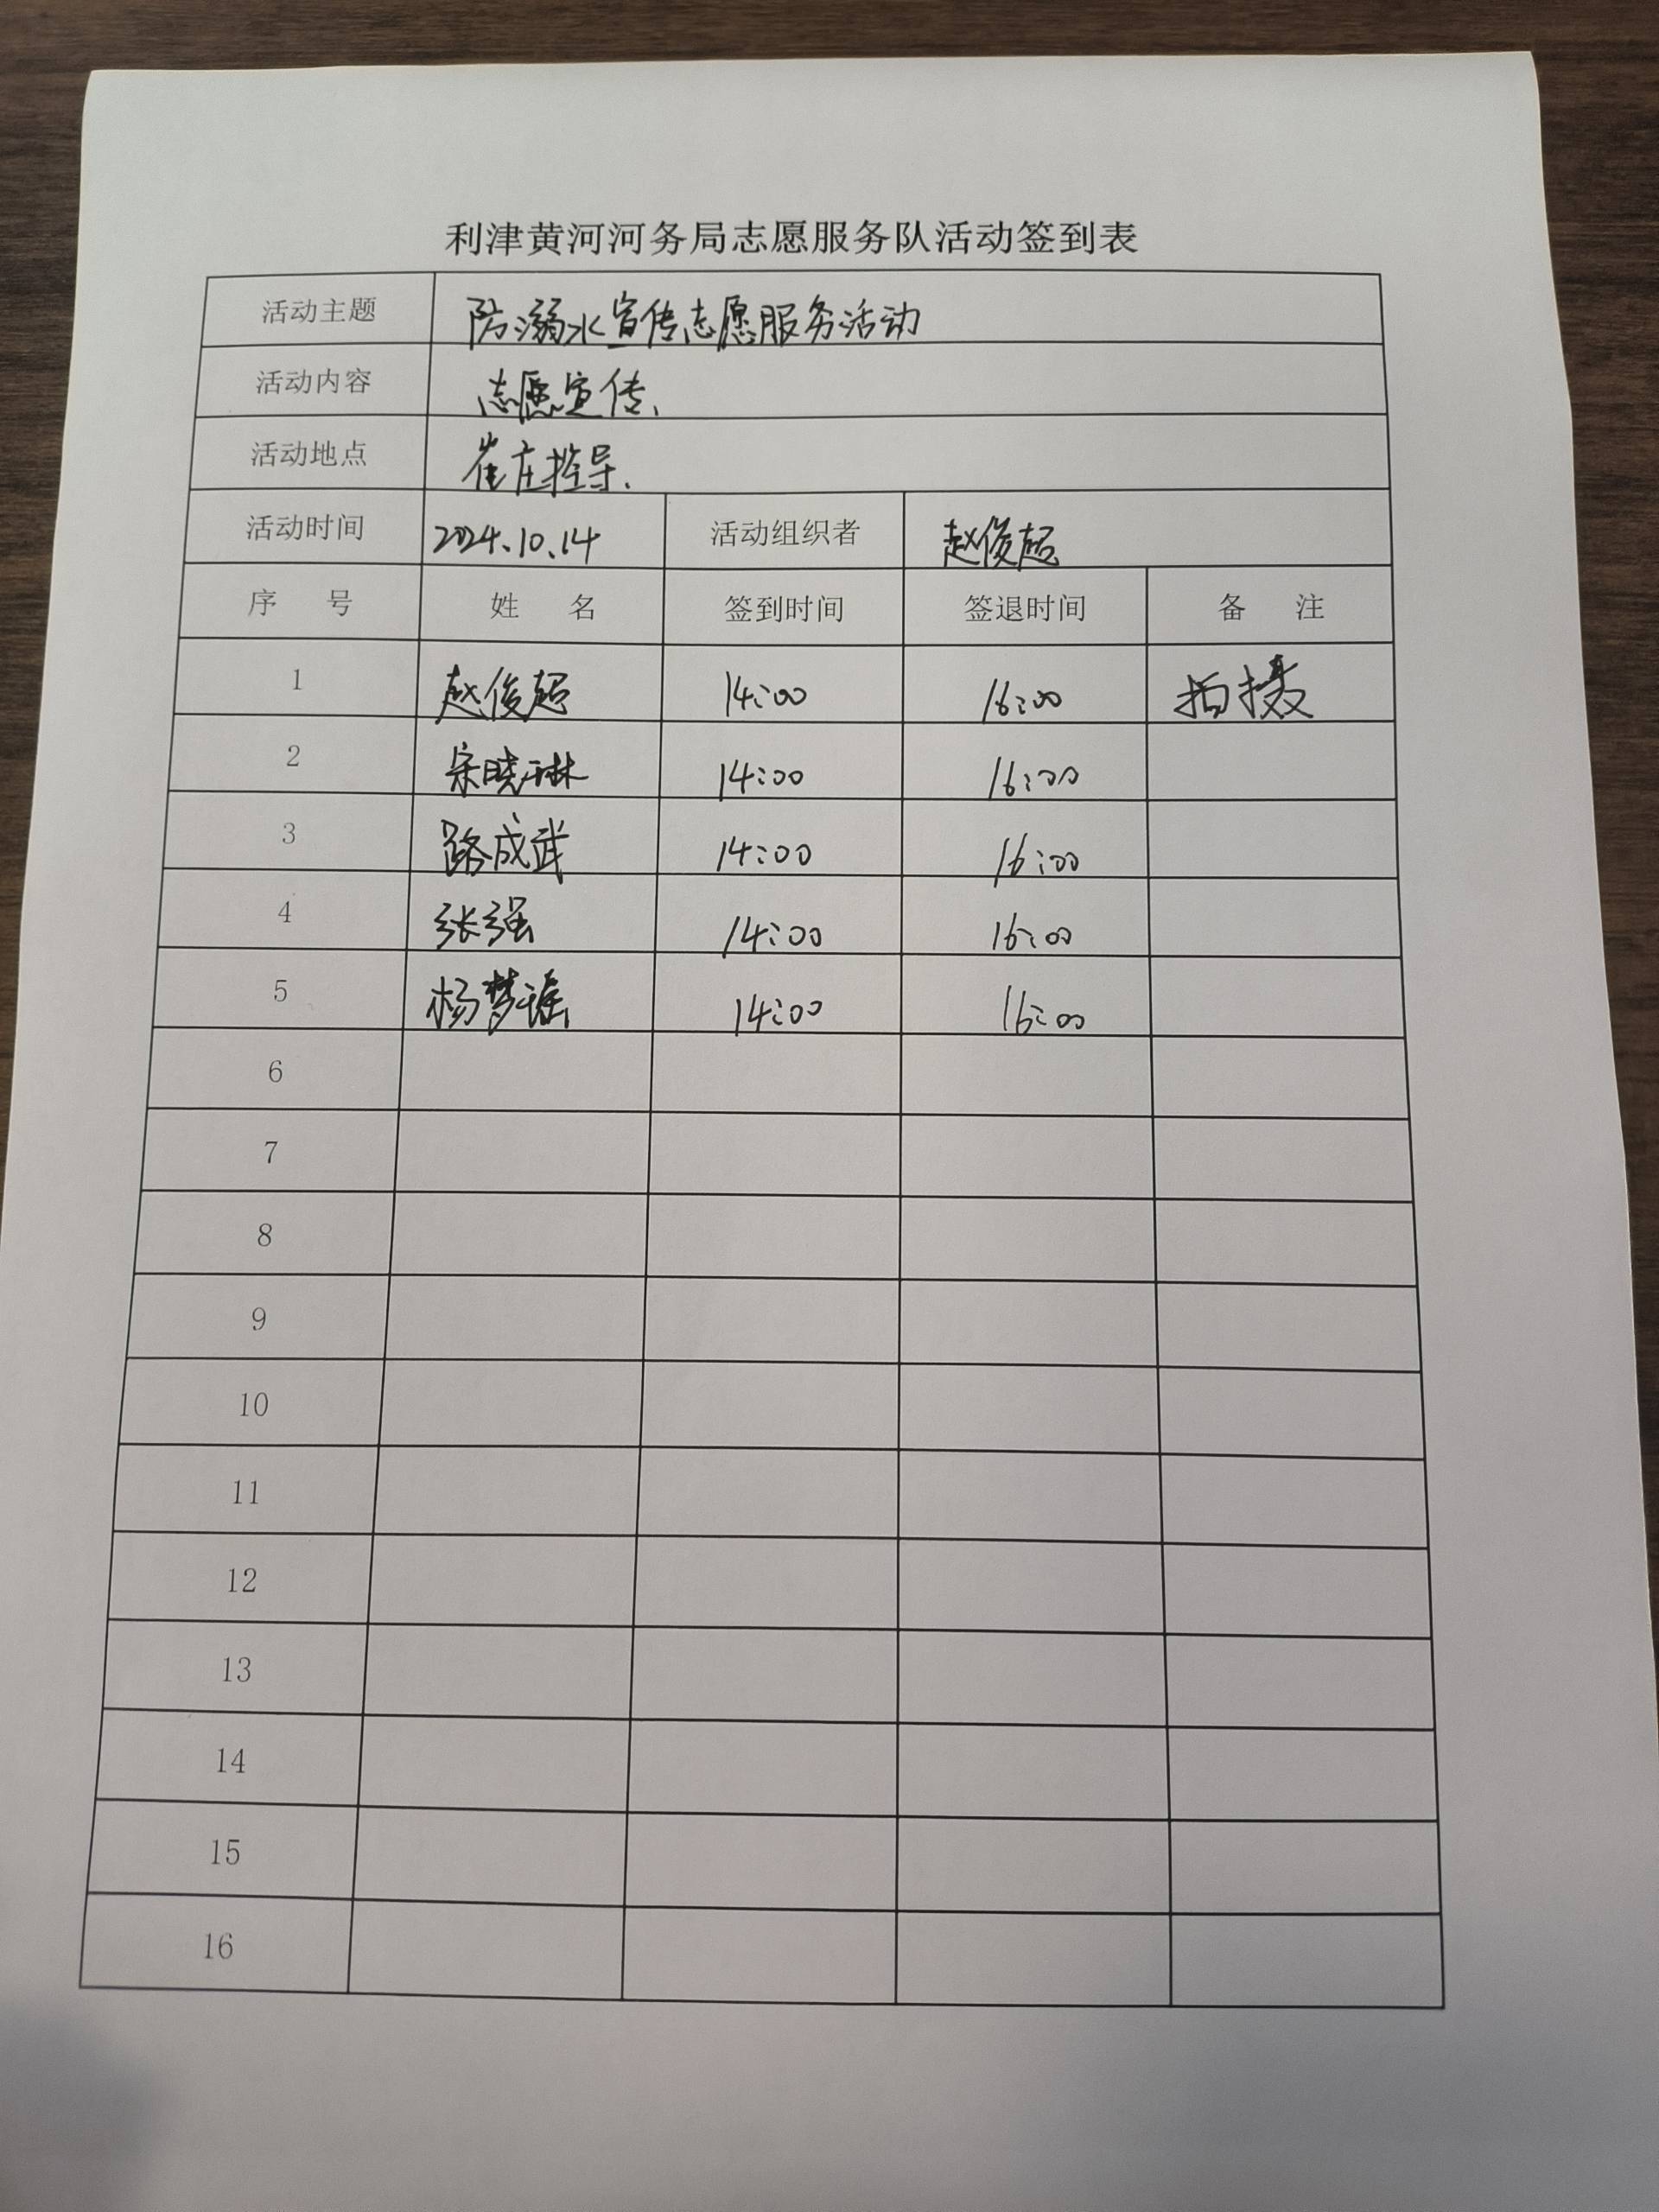 利津黄河河务局志愿服务队活动签到表
活动主题 防溺水宣传志愿服务活动
活动内容 志愿宣传、
活动地点 崔庄控导.
活动时间 2024.10.14 活动组织者 赵俊超
序 号 姓 名 签到时间 签退时间 备 注
1 赵俊超 14:00 16:00 拍摄
2 宋晓琳 14:00 16:00
3 路成武 14:00 16:00
4 张强 14:00 16:00
5 杨梦谣 14:00 16:00
6
7
8
9
10
11
12
13
14
15
16